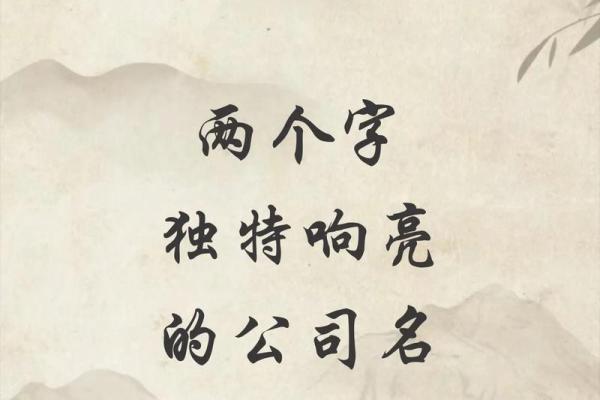 两个字
独特响亮
的公司名